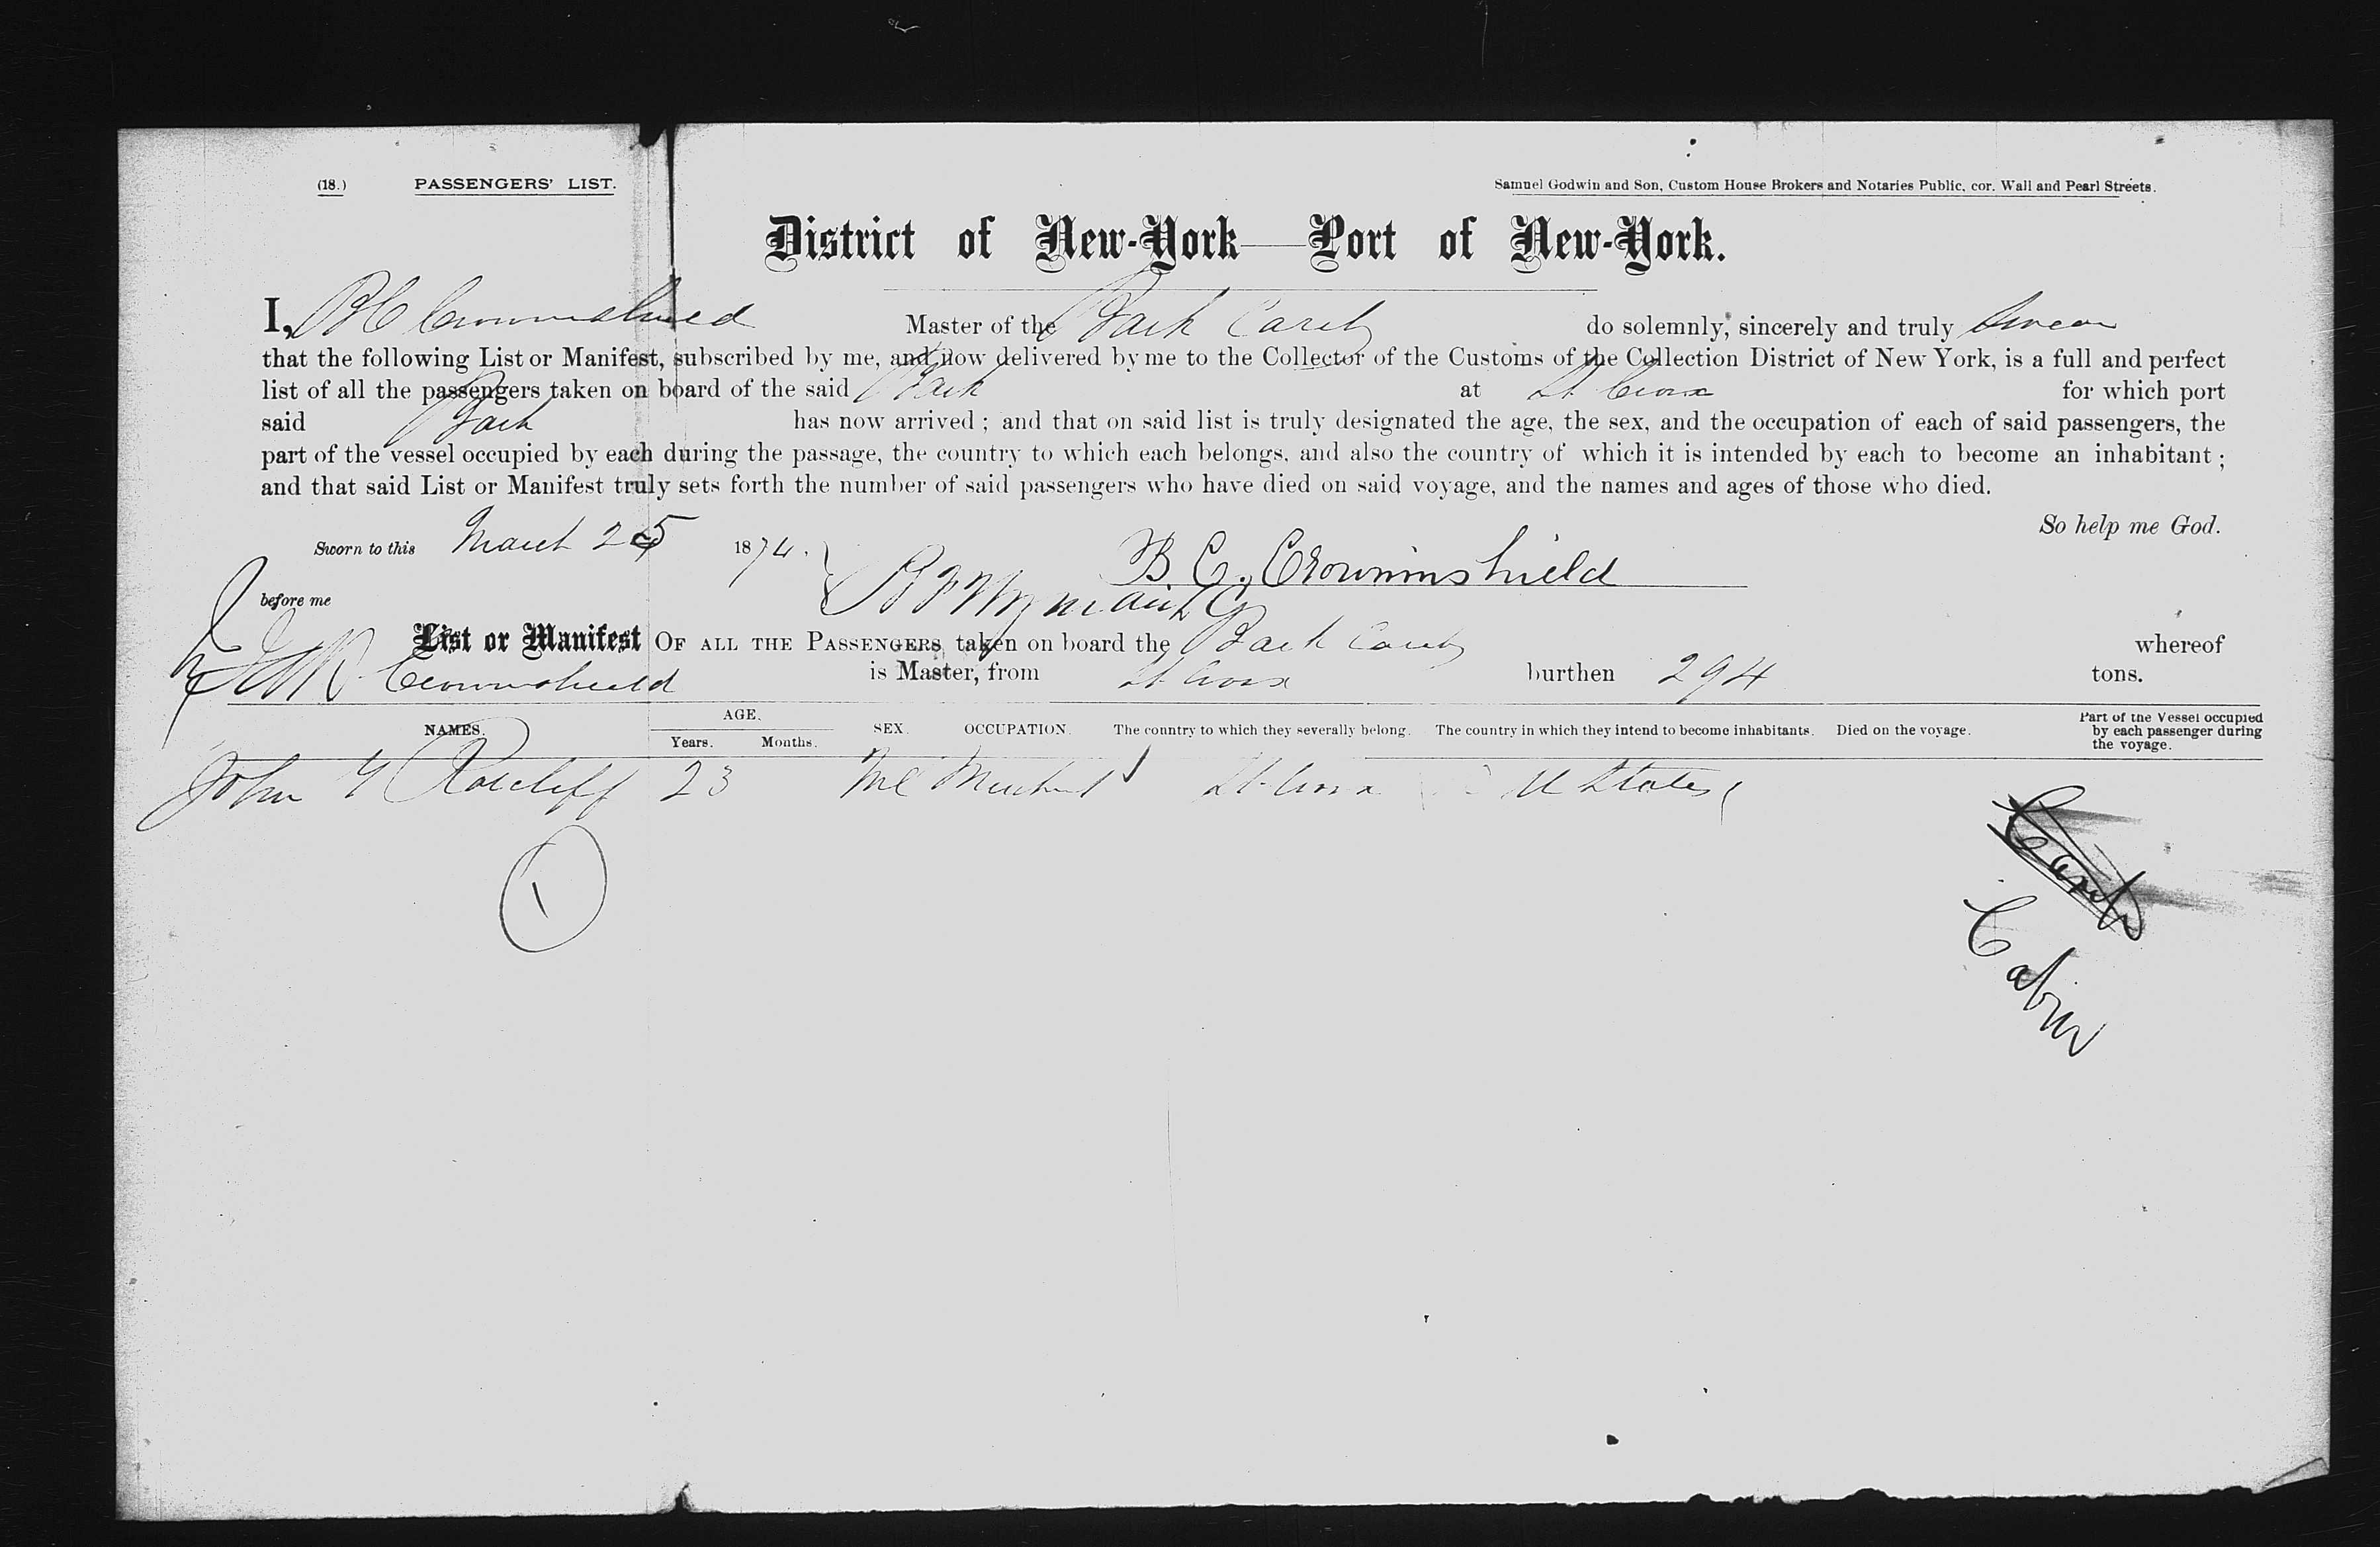 (18.) PASSENGERS' LIST. Samuel Godwin and Son, Custom House Brokers and Notaries Public, cor. Wall and Pearl Streets.
District of New-York—Port of New-York.
I, B C Crowninshield Master of the Bark Carib do solemnly, sincerely and truly Swear
that the following List or Manifest, subscribed by me, and now delivered by me to the Collector of the Customs of the Collection District of New York, is a full and perfect
list of all the passengers taken on board of the said Bark at St Croix for which port
said Bark has now arrived ; and that on said list is truly designated the age, the sex, and the occupation of each of said passengers, the
part of the vessel occupied by each during the passage, the country to which each belongs, and also the country of which it is intended by each to become an inhabitant ;
and that said List or Manifest truly sets forth the number of said passengers who have died on said voyage, and the names and ages of those who died.
So help me God.
Sworn to this March 25 1874.
B. C. Crowninshield
before me
List or Manifest OF ALL THE PASSENGERS taken on board the Bark Carib whereof
Crowninshield is Master, from St Croix burthen 294 tons.
NAMES. AGE. Years. Months. SEX. OCCUPATION. The country to which they severally belong. The country in which they intend to become inhabitants. Died on the voyage. Part of the Vessel occupied by each passenger during the voyage.
John Ratcliff 23 Ml Merchant St Croix U States
1
Cabin